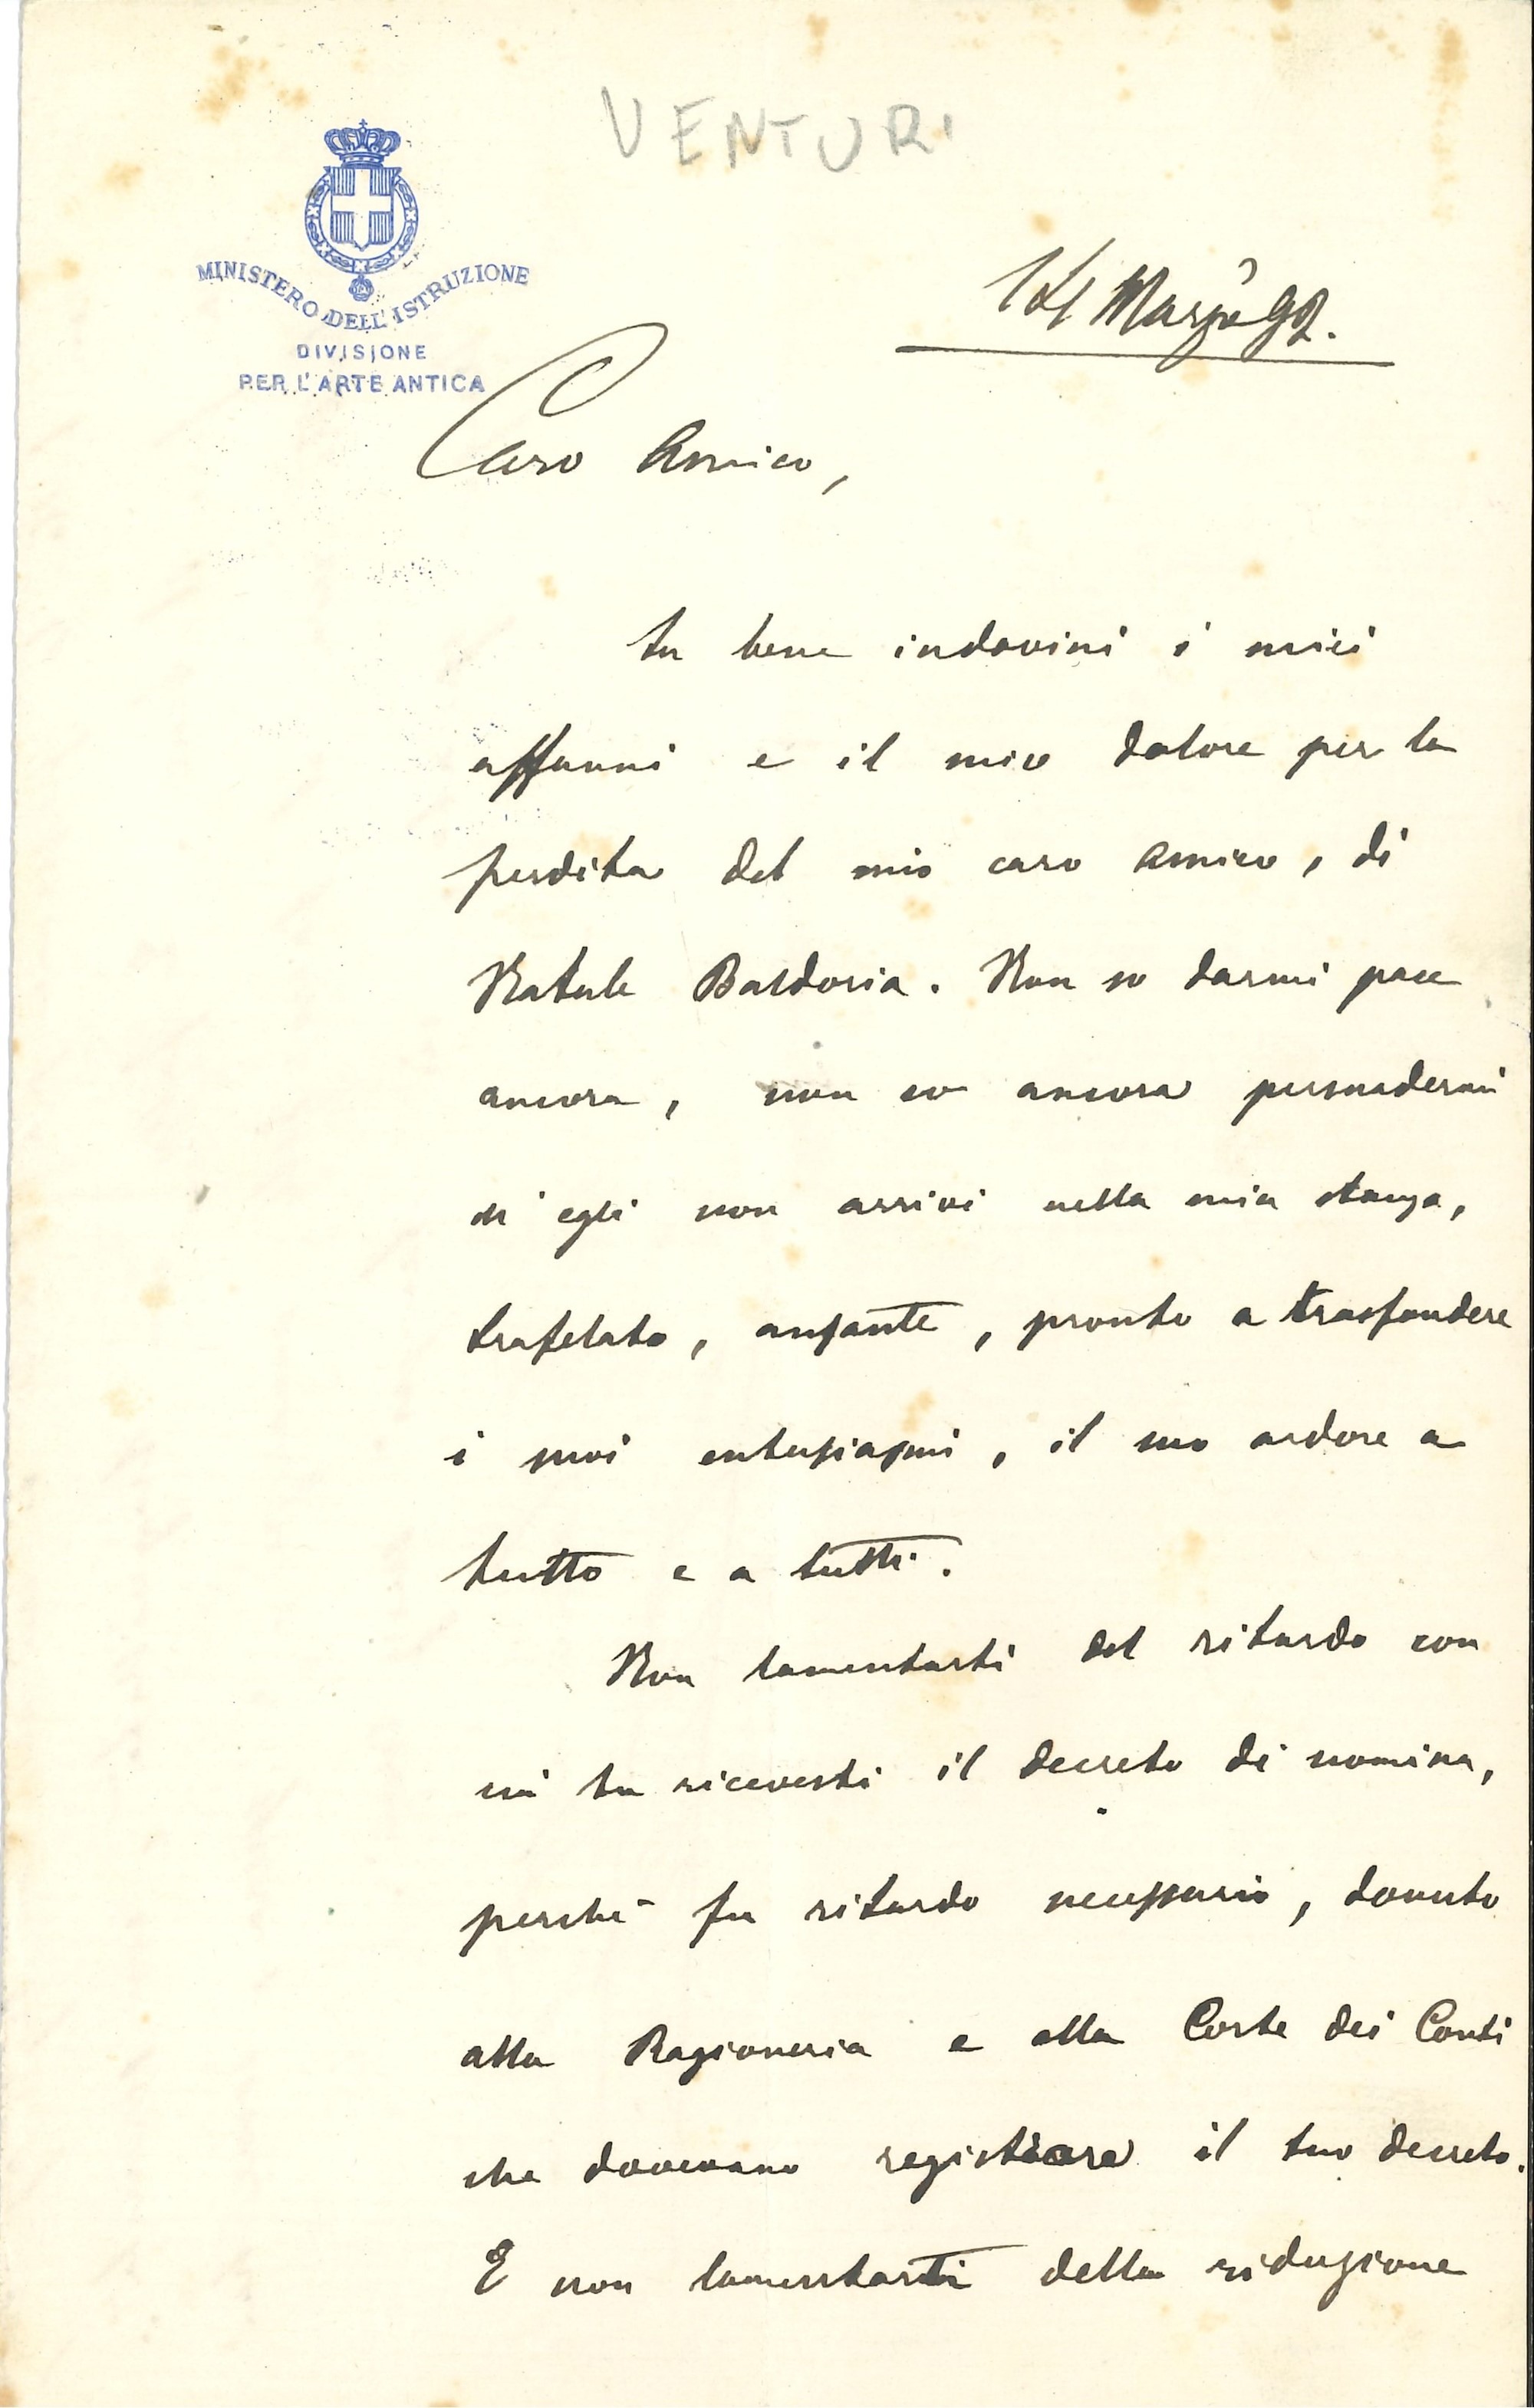 VENTURI
MINISTERO DELL'ISTRUZIONE
DIVISIONE
PER L'ARTE ANTICA
14 Marzo 97.
Caro Amico,
tu bene indovini i miei
affanni e il mio dolore per la
perdita del mio caro amico, di
Natale Baldoria. Non so darmi pace
ancora, non so ancora persuadermi
ch'egli non arrivi nella mia stanza,
trafelato, ansante, pronto a trasfondere
i suoi entusiasmi, il suo ardore a
tutto e a tutti.
Non lamentarti del ritardo con
cui tu ricevesti il decreto di nomina,
perchè fu ritardo necessario, dovuto
alla Ragioneria e alla Corte dei Conti
che dovevano registrare il tuo decreto.
E non lamentarti della riduzione